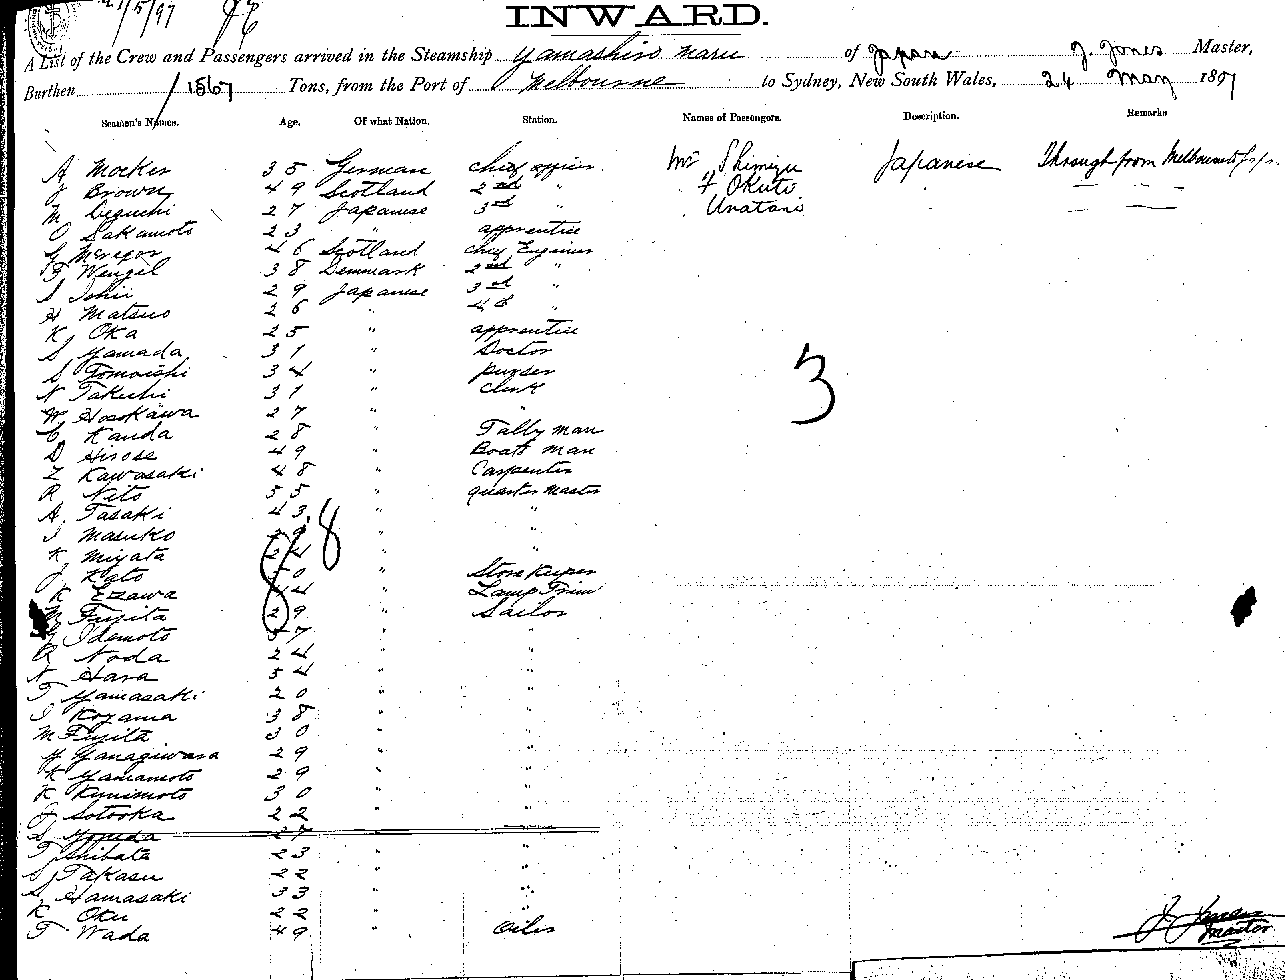 21/5/97
INWARD.
A List of the Crew and Passengers arrived in the Steamship Yamashiro Maru of Japan J. Jones Master,
Burthen 1567 Tons, from the Port of Melbourne to Sydney, New South Wales, 24 May 1897
Seamen's Names. Age. Of what Nation. Station. Names of Passengers. Description. Remarks
A Mocker 35 German Chief officer Mr Shimizu Japanese Through from Melbourne to
J Brown 49 Scotland 2nd " Okuto
M Deguchi 27 Japanese 3rd "
O Sakamoto 23 " apprentice
46 Scotland Chief Engineer
F Wengel 38 Denmark 2nd "
S Ishii 29 Japanese 3rd "
H Matsuo 26 " 4th "
K Oka 25 " apprentice
S Yamada 31 " Doctor
S Tomoishi 34 " purser
N Takuchi 31 " Clerk
W Hosokawa 27 " "
C Kanda 28 " Tally man
D Hirose 49 " Boats man
Z Kawasaki 48 " Carpenter
R Nito 55 " quarter master
A Tasaki 43 " "
I Masuko " "
K Miyata 24 " "
J Kato " Store Keeper
K Ezawa " Lamp Trim
M Fujita 29 " Sailor
Idemoto 37 " "
R Noda 24 " "
N Hara 54 " "
T Yamasaki 20 " "
I Koyama 38 " "
M Fujita 30 " "
H Yanagiwara 29 " "
K Yamamoto 29 " "
K Kunimoto 30 " "
J Sotooka 22 " "
S Yoneda 27 " "
T Shibata 23 " "
S Takasu 22 " "
S Hamasaki 33 " "
K Oku 22 " "
T Wada 49 " Oiler
3
8
J Jones
Master